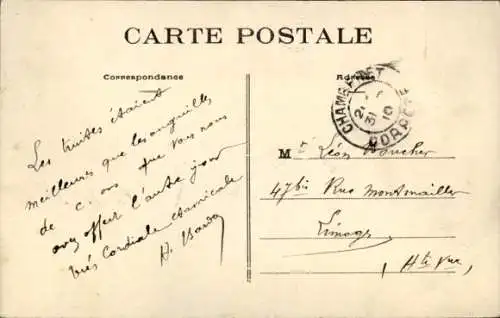 CARTE POSTALE
Correspondance
Les truites étaient
meilleures que les anguilles
de C. ons que vous nous
avez offert l'autre jour
très Cordiale et amicale
Adresse
CHAMBERET
31 10
CORREZE
Mr Léon Boucher
47 bis Rue Montmailler
Limoges
Hte Vne